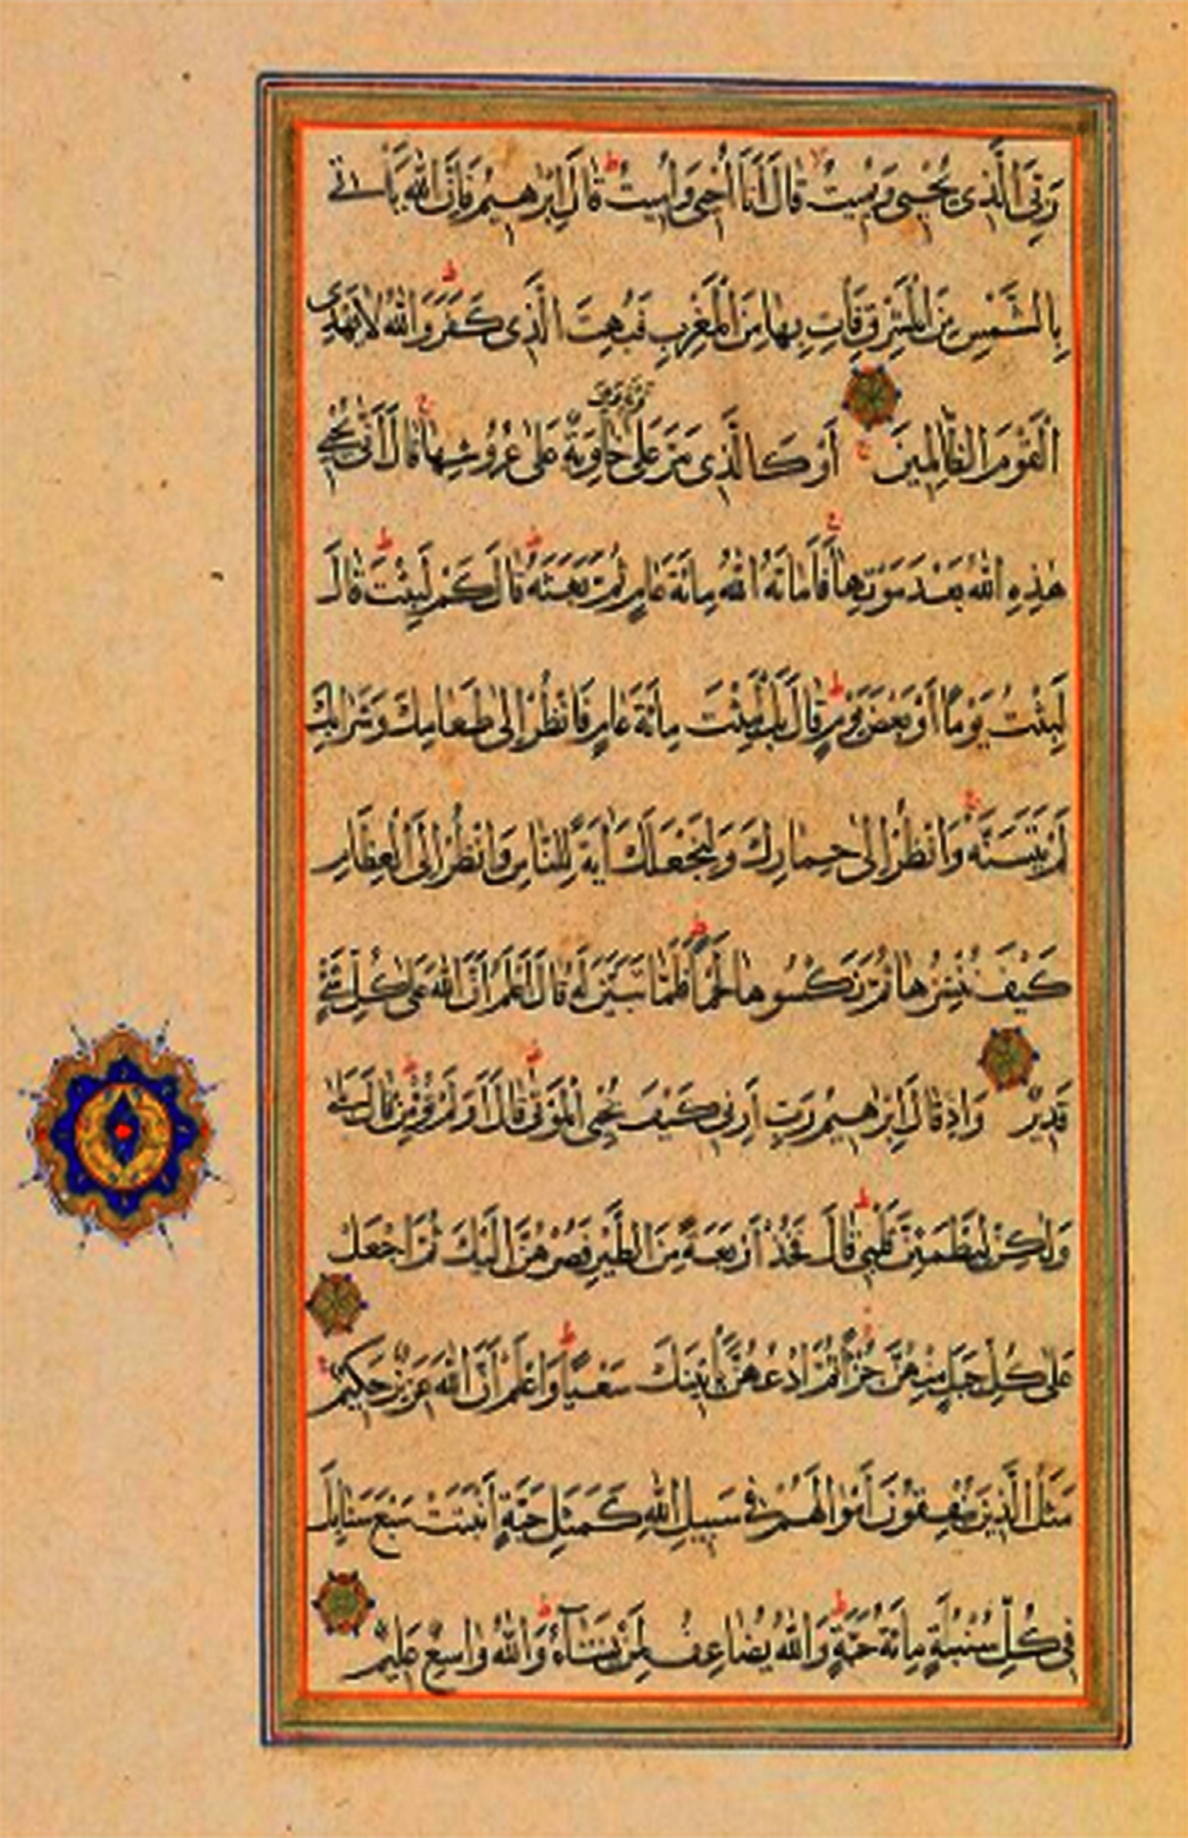 رَبِّيَ الَّذِي يُحْيِي وَيُمِيتُ قَالَ أَنَا أُحْيِي وَأُمِيتُ قَالَ إِبْرٰهِيمُ فَإِنَّ اللّٰهَ يَأْتِي
بِالشَّمْسِ مِنَ الْمَشْرِقِ فَأْتِ بِهَا مِنَ الْمَغْرِبِ فَبُهِتَ الَّذِي كَفَرَ وَاللّٰهُ لَا يَهْدِي
قَرْيَةٍ وَهِيَ
الْقَوْمَ الظَّالِمِينَ أَوْ كَالَّذِي مَرَّ عَلٰى خَاوِيَةٌ عَلٰى عُرُوشِهَا قَالَ أَنّٰى يُحْيِي
هٰذِهِ اللّٰهُ بَعْدَ مَوْتِهَا فَأَمَاتَهُ اللّٰهُ مِائَةَ عَامٍ ثُمَّ بَعَثَهُ قَالَ كَمْ لَبِثْتَ قَالَ
لَبِثْتُ يَوْمًا أَوْ بَعْضَ يَوْمٍ قَالَ بَلْ لَبِثْتَ مِائَةَ عَامٍ فَانْظُرْ إِلٰى طَعَامِكَ وَشَرَابِكَ
لَمْ يَتَسَنَّهْ وَانْظُرْ إِلٰى حِمَارِكَ وَلِنَجْعَلَكَ اٰيَةً لِلنَّاسِ وَانْظُرْ إِلَى الْعِظَامِ
كَيْفَ نُنْشِزُهَا ثُمَّ نَكْسُوهَا لَحْمًا فَلَمَّا تَبَيَّنَ لَهُ قَالَ أَعْلَمُ أَنَّ اللّٰهَ عَلٰى كُلِّ شَيْءٍ
قَدِيرٌ وَإِذْ قَالَ إِبْرٰهِيمُ رَبِّ أَرِنِي كَيْفَ تُحْيِي الْمَوْتٰى قَالَ أَوَلَمْ تُؤْمِنْ قَالَ بَلٰى
وَلٰكِنْ لِيَطْمَئِنَّ قَلْبِي قَالَ فَخُذْ أَرْبَعَةً مِنَ الطَّيْرِ فَصُرْهُنَّ إِلَيْكَ ثُمَّ اجْعَلْ
عَلٰى كُلِّ جَبَلٍ مِنْهُنَّ جُزْءًا ثُمَّ ادْعُهُنَّ يَأْتِينَكَ سَعْيًا وَاعْلَمْ أَنَّ اللّٰهَ عَزِيزٌ حَكِيمٌ
مَثَلُ الَّذِينَ يُنْفِقُونَ أَمْوَالَهُمْ فِي سَبِيلِ اللّٰهِ كَمَثَلِ حَبَّةٍ أَنْبَتَتْ سَبْعَ سَنَابِلَ
فِي كُلِّ سُنْبُلَةٍ مِائَةُ حَبَّةٍ وَاللّٰهُ يُضَاعِفُ لِمَنْ يَشَاءُ وَاللّٰهُ وَاسِعٌ عَلِيمٌ